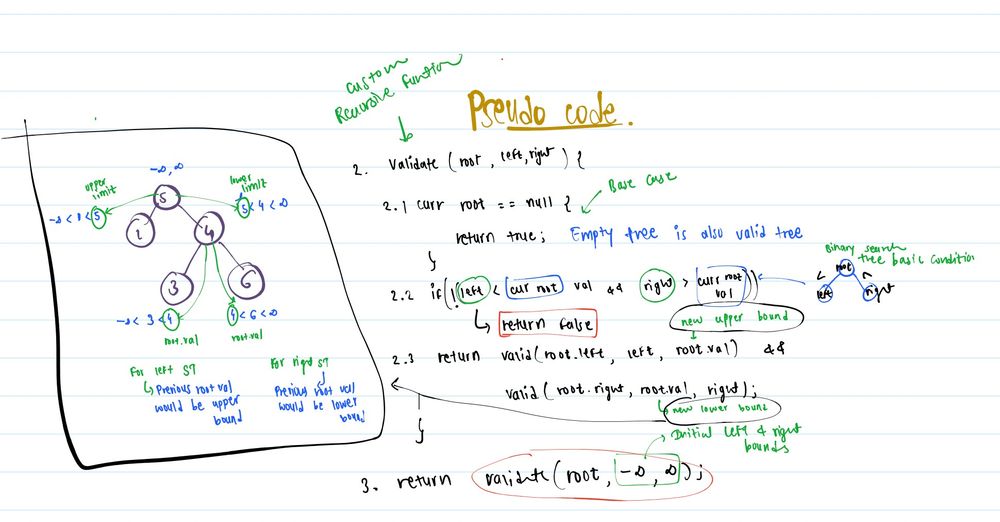 custom
Recursive function
Pseudo code.
2. validate (root, left, right) {
Base case
2.1 curr root == null {
return true; Empty tree is also valid tree
}
2.2 if(!(left < cur root val && right > curr root val))
return false
Binary search
tree basic condition
root
< <
left right
new upper bound
2.3 return valid(root.left, left, root.val) &&
valid (root.right, root.val, right);
new lower bound
}
Initial left & right
bounds
3. return validate(root, -∞, ∞);
-∞, ∞
upper
limit
lower
limit
5
-∞ < 1 < 5
5 < 4 < ∞
1 4
3 6
-∞ < 3 < 4
4 < 6 < ∞
root.val root.val
For left ST
Previous root val
would be upper
bound
For right ST
Previous root val
would be lower
bound